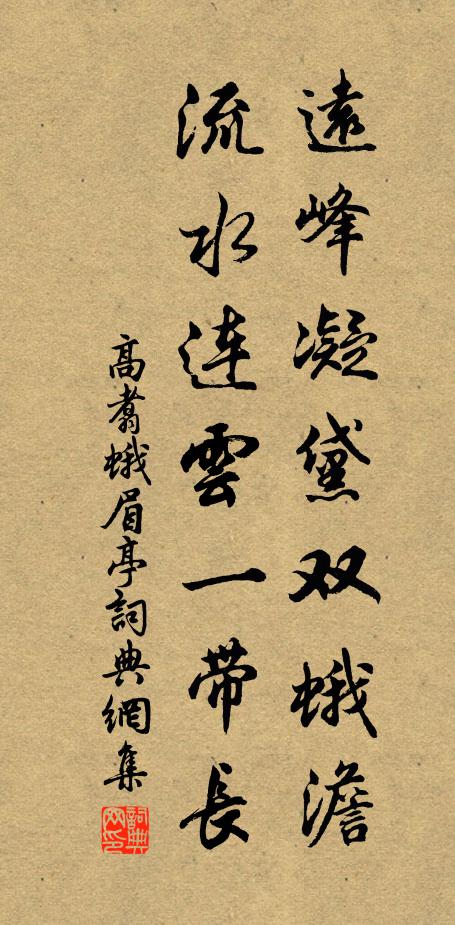 遠峰凝黛双蛾澹
流水连雲一带長
高翥蛾眉亭詞典網集
詞典网印